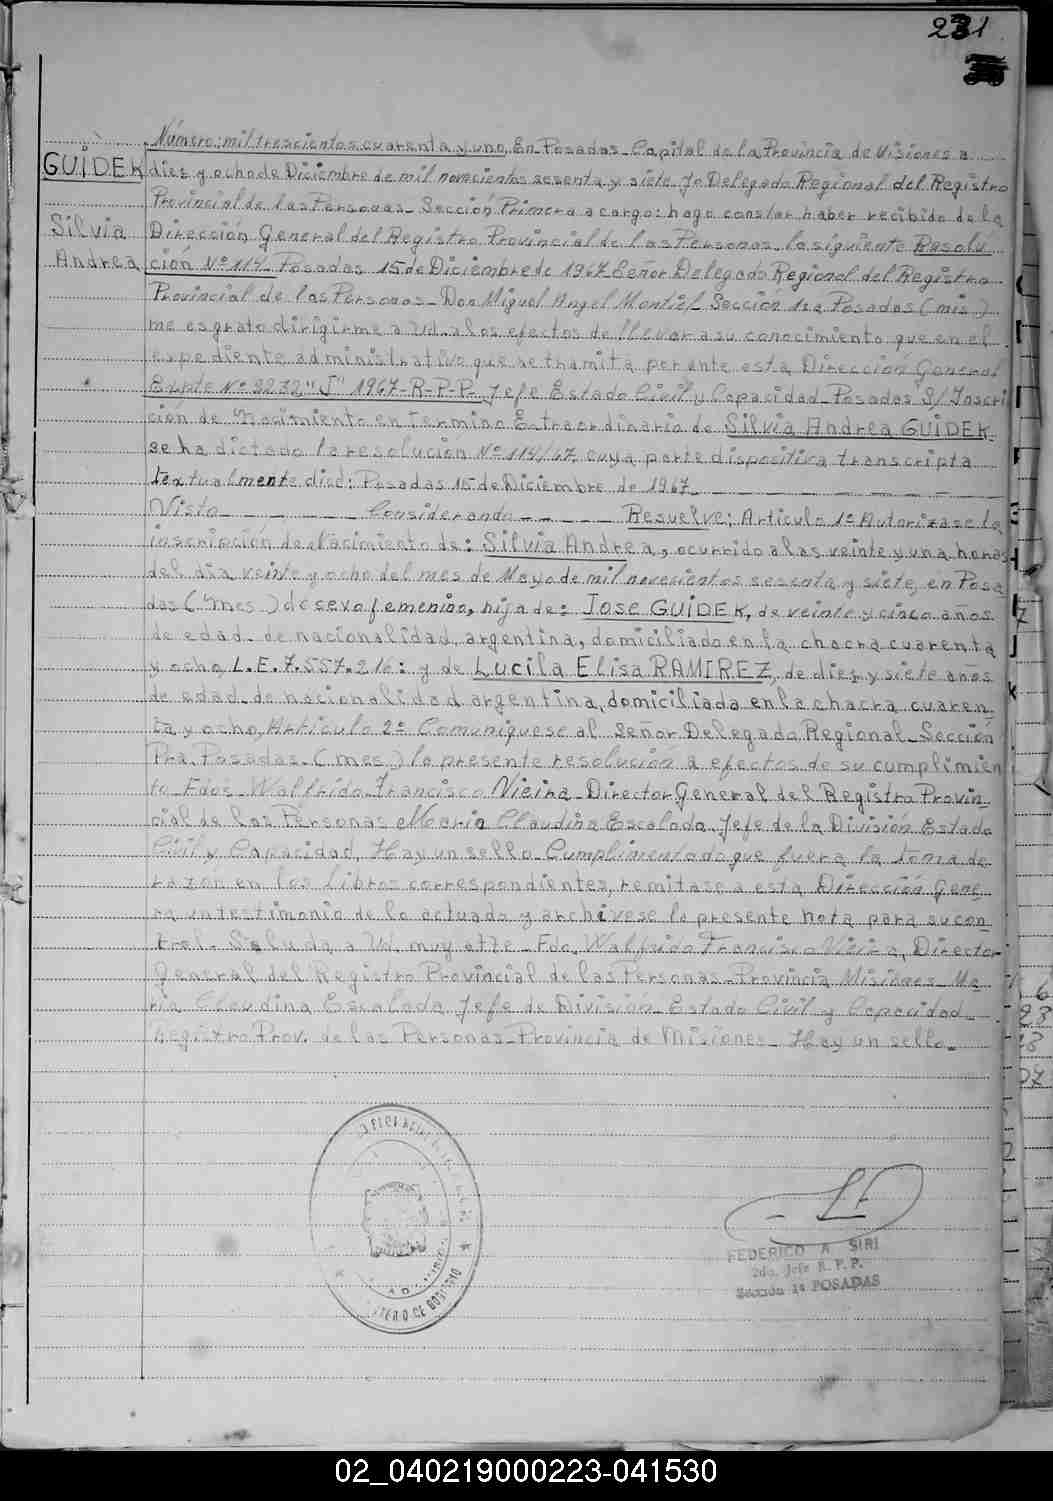 231
GUIDEK
Silvia
Andrea
Número: mil trescientos cuarenta y uno. En Posadas Capital de la Provincia de Misiones a
diez y ocho de Diciembre de mil novecientos sesenta y siete. Jo Delegado Regional del Registro
Provincial de las Personas Sección Primera a cargo: hago constar haber recibido de la
Dirección General del Registro Provincial de las Personas la siguiente Resolu
ción Nº 114. Posadas 15 de Diciembre de 1967 Señor Delegado Regional del Registro
Provincial de las Personas Don Miguel Angel Montiel Sección 1ra Posadas (mis)
me es grato dirigirme a Ud. a los efectos de llevar a su conocimiento que en el
expediente administrativo que se tramita por ante esta Dirección General
Expte Nº 2232 "J" 1967-R-P-P. Jefe Estado Civil y Capacidad Posadas S/ Inscri
ción de Nacimiento en Termino Extraordinario de Silvia Andrea GUIDEK
se ha dictado la resolución Nº 114/67 cuya parte dispositiva transcripta
textualmente dice: Posadas 15 de Diciembre de 1967.
Visto Considerando Resuelve: Articulo 1º Autorizase la
inscripción de Nacimiento de: Silvia Andrea, ocurrido a las veinte y una horas
del dia veinte y ocho del mes de Mayo de mil novecientos sesenta y siete, en Posa
das (Mes) de sexo femenino, hija de: Jose GUIDEK, de veinte y cinco años
de edad de nacionalidad argentina, domiciliado en la chacra cuarenta
y ocho, L.E. 7.557.216: y de Lucila Elisa RAMIREZ, de diez y siete años
de edad de nacionalidad argentina, domiciliada en la chacra cuaren
ta y ocho, Articulo 2º Comuniquese al Señor Delegado Regional Sección
Pra. Posadas (mes) la presente resolución a efectos de su cumplimien
to Fdos Walfrido Francisco Vieira Director General del Registro Provin
cial de las Personas Maria Claudina Escalada Jefe de la División Estado
Civil y Capacidad, Hay un sello Cumplimentado que fuera la toma de
razón en los libros correspondientes, remitase a esta Dirección Gene
ra un testimonio de lo actuado y archivese la presente nota para su con
trol. Saluda a Ud. muy atte Fdo. Walfrido Francisco Vieira, Director
General del Registro Provincial de las Personas Provincia Misiones Ma
ria Claudina Escalada Jefe de División Estado Civil y Capacidad
Registro Prov. de las Personas Provincia de Misiones Hay un sello
FEDERICO A SIRI
2do. Jefe R. P. P.
Sección 1ª POSADAS
02_040219000223-041530